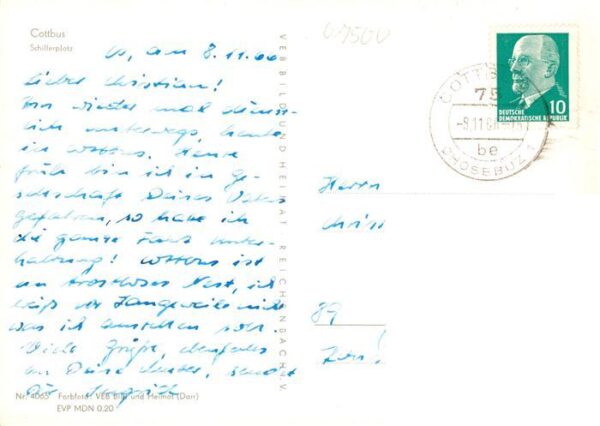 Cottbus
Schillerplatz
Co, am 8.11.66
Lieber Christian!
Bin wieder mal dienst-
lich unterwegs, heute
in Cottbus. Heute
früh bin ich in Ge-
sellschaft Deines Vaters
gefahren, so habe ich
die ganze Fahrt Unter-
haltung! Cottbus ist
ein trostloses Nest, ich
weiß vor Langeweile nicht
was ich anstellen soll.
Viele Grüße, ebenfalls
an Deine Mutter, sendet
Dir
Nr. 4065 Farbfoto: VEB Bild und Heimat (Darr)
EVP MDN 0,20
VEB BILD UND HEIMAT REICHENBACH I. V.
COTTBUS 1
75
-8.11.66
be
CHOSEBUZ 1
DEUTSCHE
DEMOKRATISCHE REPUBLIK
10
Herrn
89